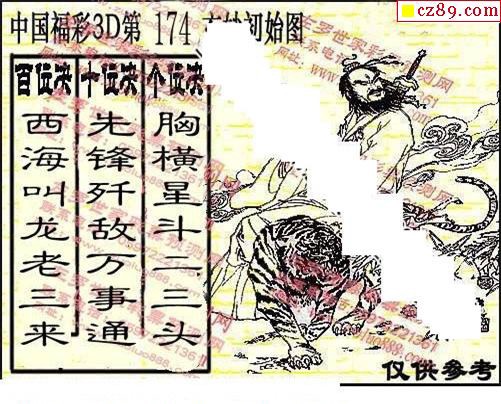 cz89.com
中国福彩3D第 174 初始图
百位决
西海叫龙老三来
十位决
先锋歼敌万事通
个位决
胸横星斗二三头
仅供参考